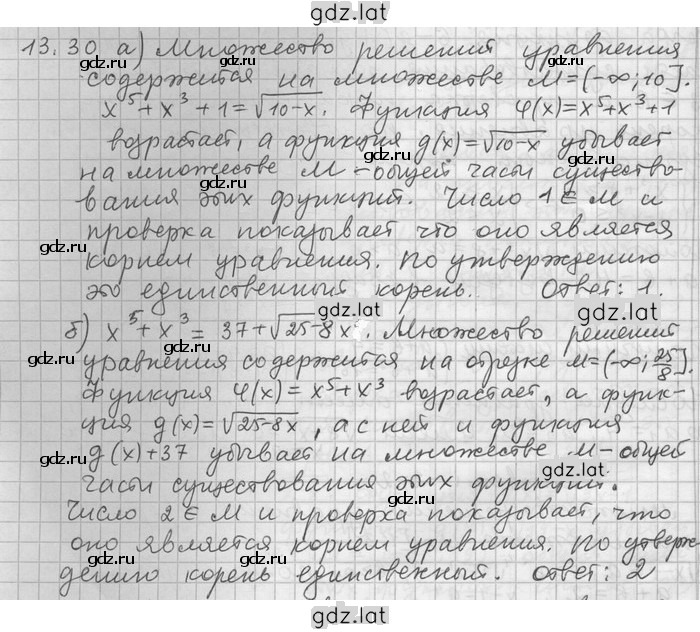 gdz.lat
13.30 а) Множество решений уравнения
содержится на множестве M=(-∞;10].
x⁵+x³+1=√10-x. Функция φ(x)=x⁵+x³+1
возрастает, а функция g(x)=√10-x убывает
на множестве M-общей части существо-
вания этих функций. Число 1∈M и
проверка показывает что оно является
корнем уравнения. по утверждению
это единственный корень. Ответ: 1.
б) x⁵+x³=37+√25-8x. Множество решений
уравнения содержится на отрезке M=(-∞; 25/8].
Функция φ(x)=x⁵+x³ возрастает, а функ-
ция g(x)=√25-8x, а с ней и функция
g(x)+37 убывает на множестве M-общей
части существования этих функций.
Число 2∈M и проверка показывает, что
оно является корнем уравнения. по утверж-
дению корень единственный. Ответ: 2
gdz.lat